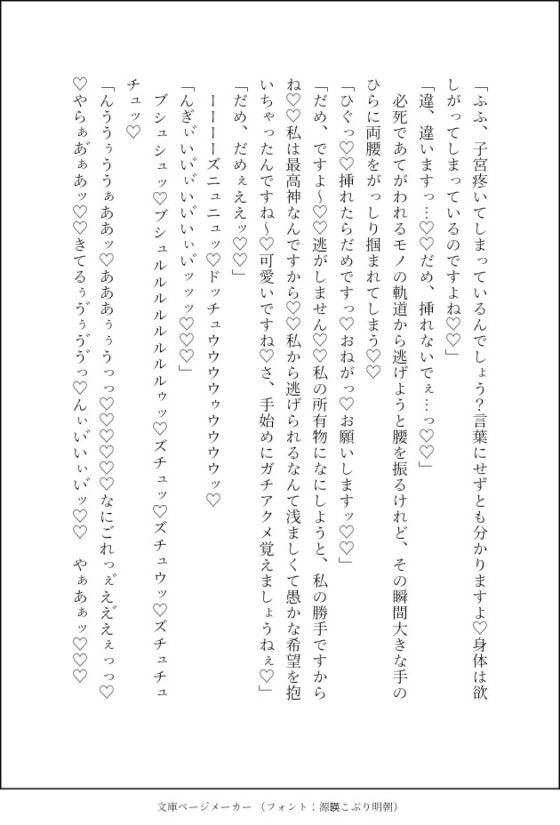 「ふふ、子宮疼いてしまっているんでしょう？言葉にせずとも分かりますよ♡身体は欲
しがってしまっているのですよね♡♡」
「違、違いますっ…♡♡だめ、挿れないでぇ…っ♡♡」
　必死であてがわれるモノの軌道から逃げようと腰を振るけれど、その瞬間大きな手の
ひらに両腰をがっしり掴まれてしまう♡♡
「ひぐっ♡♡挿れたらだめですっ♡おねがっ♡お願いしますッ♡♡」
「だめ、ですよ〜♡♡逃がしません♡♡私の所有物になにしようと、私の勝手ですから
ね♡♡私は最高神なんですから♡♡私から逃げられるなんて浅ましくて愚かな希望を抱
いちゃったんですね〜♡可愛いですね♡さ、手始めにガチアクメ覚えましょうねぇ♡」
「だめ、だめぇえッ♡♡」
　ーーーーズニュニュッ♡ドッチュウウウウゥウウウウッ♡
「んぎぃ゛いい゛ぃ゛いい゛ぃい゛ッッッ♡♡♡」
　ブシュシュッ♡プシュルルルルルルルルゥッ♡ズチュッ♡ズチュウッ♡ズチュチュ
チュッ♡
「んううぅううぁああッ♡あああぅぅうっっ♡♡♡♡♡なにごれっえ゛ええ゛えぇっっ♡
♡やらぁあ゛ぁあッ♡♡きてるぅゔぅゔゔっ♡んぃい゛いぃい゛ッ♡♡　やぁあぁッ♡♡♡
文庫ページメーカー（フォント：源暎こぶり明朝）